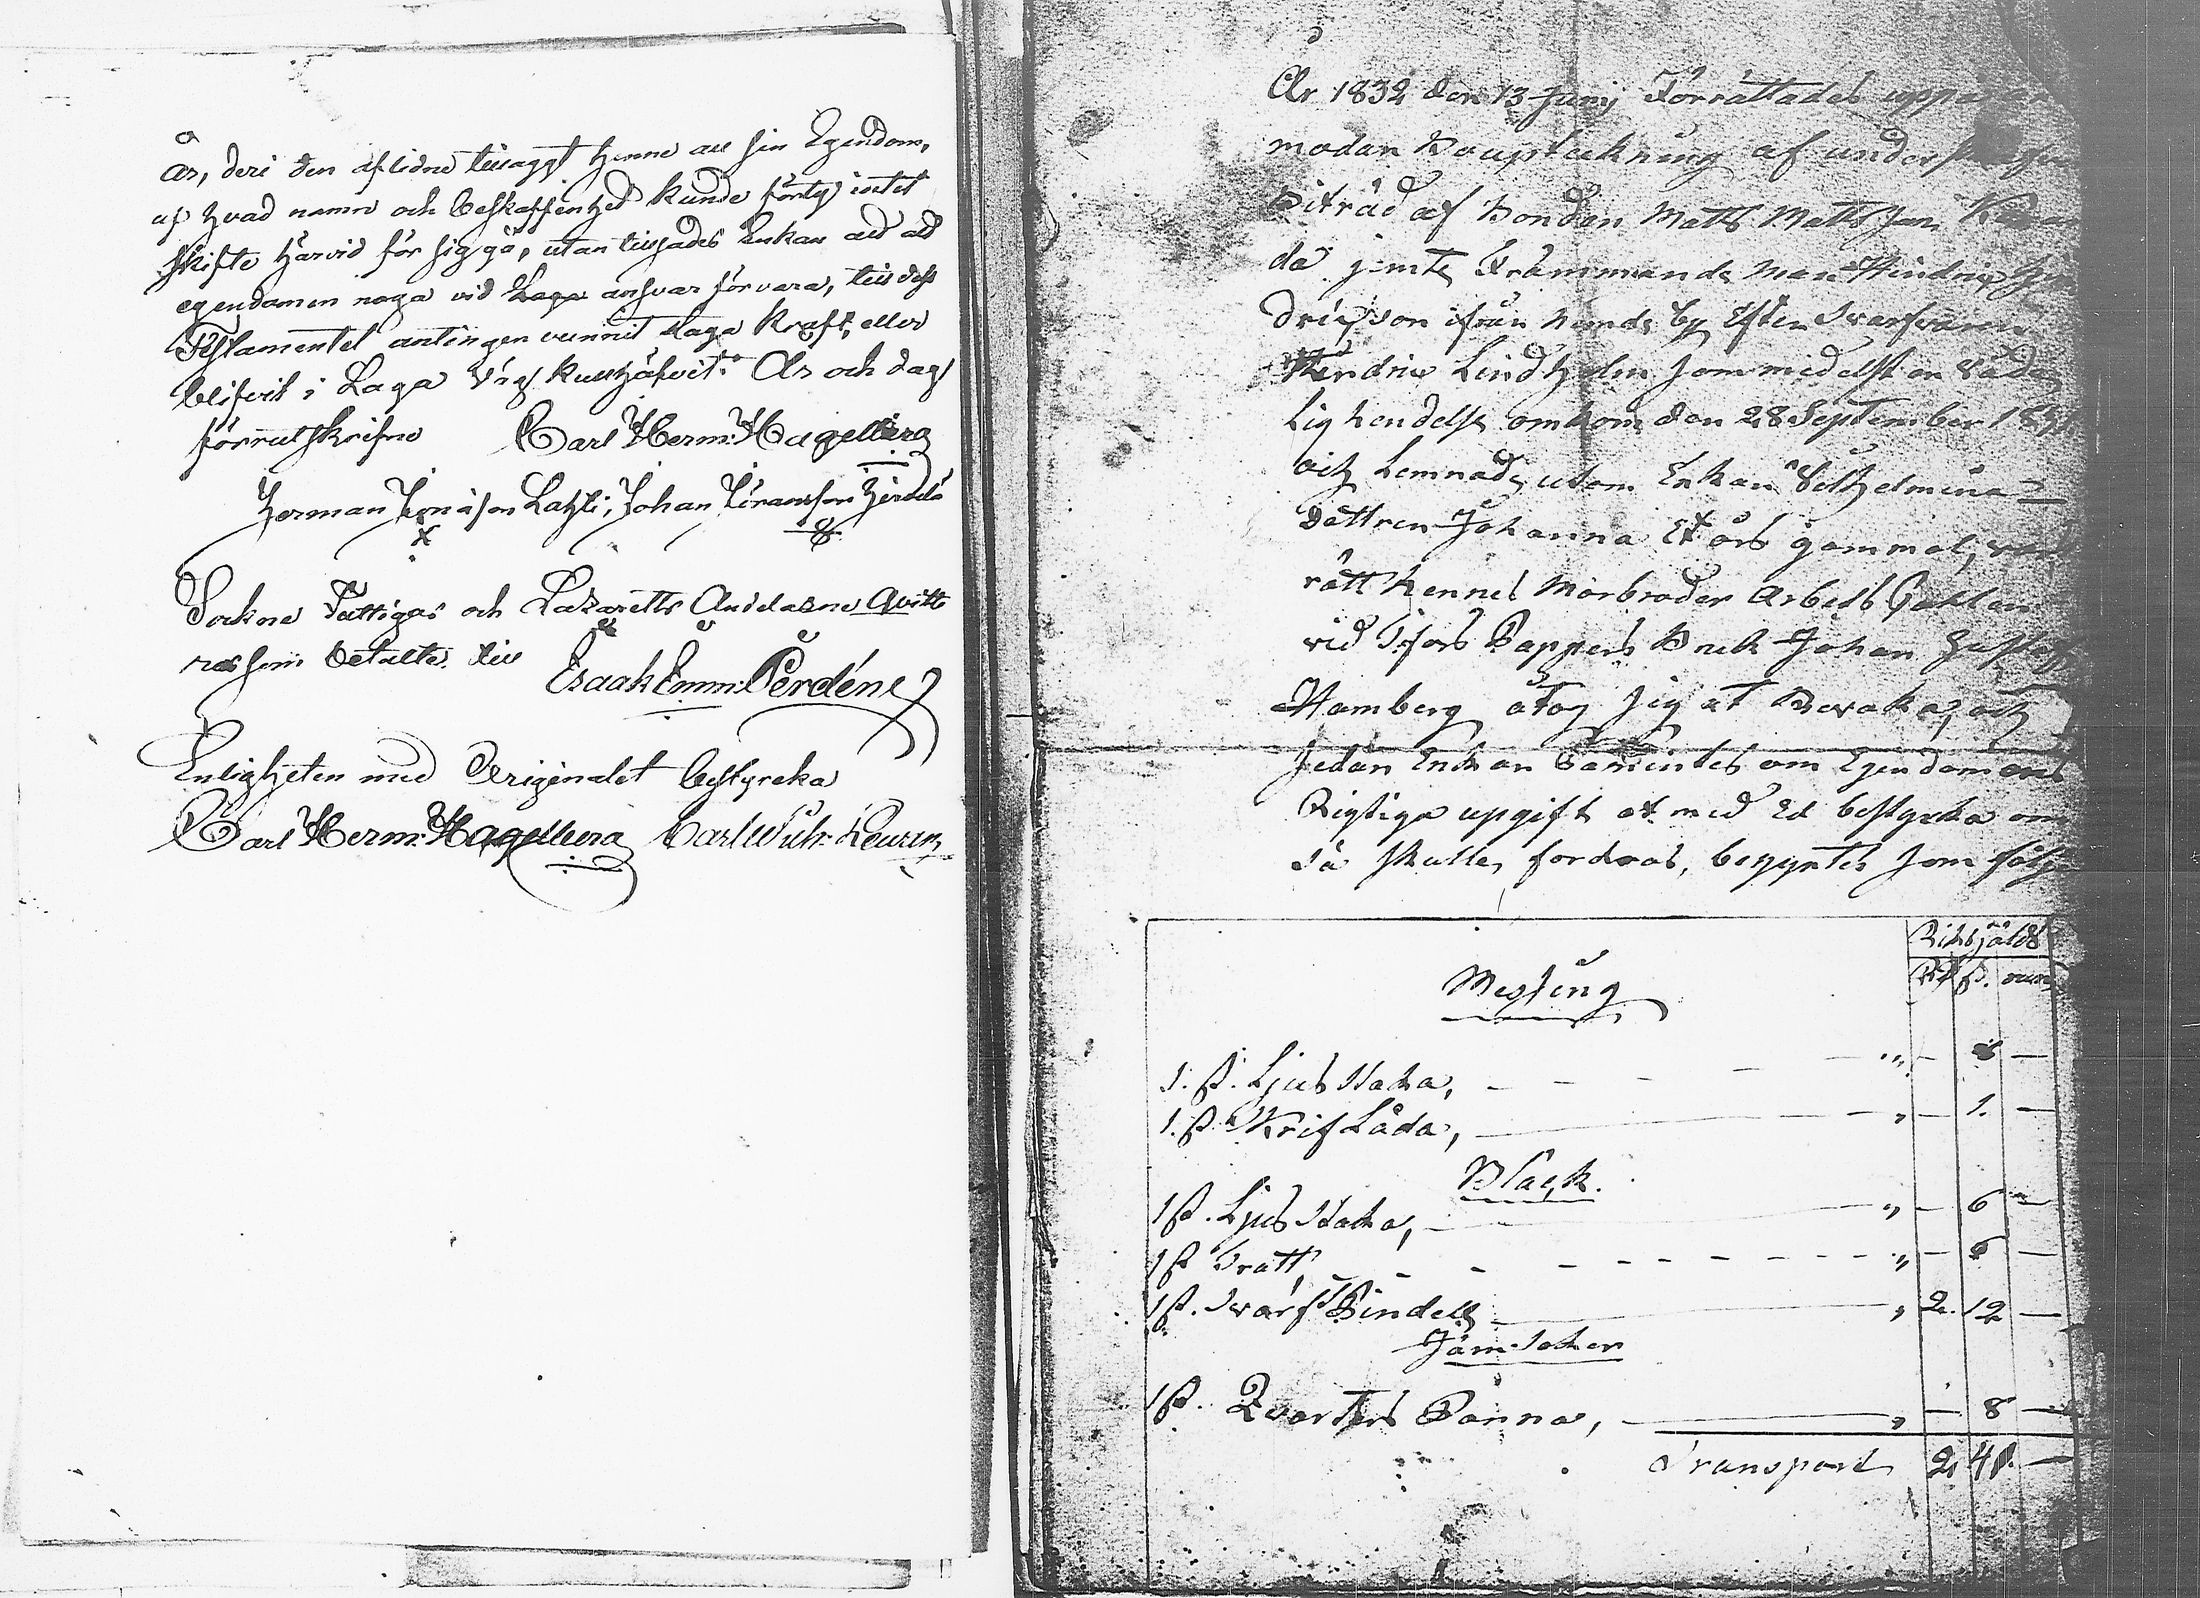 År, deri den aflidne tillaggt henne all sin Egendom,
af hvad namn och beskaffenhet kunde förty intet
skifte härvid för sig gå, utan tillsades Enkan att all
egendomen noga vid Laga ansvar förvara, till dess
Testamentet antingen vunnit Laga Kraft, eller
blifvit i Laga väg kullkäfvit. År och dag
förrutskrifne Carl Herm: Hagelberg
Herman Lahti, Johan
Sockne Fattigas och Lazaretts Andelarne
som betalte till
Esaak Emm: Perdén
Enligheten med Originalet bestyrcka
Carl Herm: Hagelberg Carl Wilh:
År 1832 den 13 Junij Förrättades uppå
modan Bouptekning af
Biträd af Bonden Matts Matts son
då jemte Främmande Man Hindric
dricsson ifrån by Efter Svarfvaren
Hindric Lindholm som medelst en våda
lig hendelse omkom den 28 September 1831
och Lemnade utom Enkan Vilhelmina
dottren Johanna Et års gammal,
rätt hennes Morbroder Arbets
vid Tfors Pappers Bruk Johan
Hamberg åtog sig at Bevaka, och
sedan Enkan om Egendomens
Rigtiga upgift at med Ed bestyrka om
så skulle fordras, begyntes som följer
Riksgälds
Rd ß.
Messing
1. st. Ljus Staka, — " — 6 —
1. st. Skrif Låda, — " — 1. —
Bläck.
1 st. Ljus Staka, — " — 6 —
1 st Tratt — " — 6 —
1 st. Svarf Spindell — " 2. 12 —
Järn Saker
1 st. Qvarters Panna, — " — 8 —
Transport 2 41. —